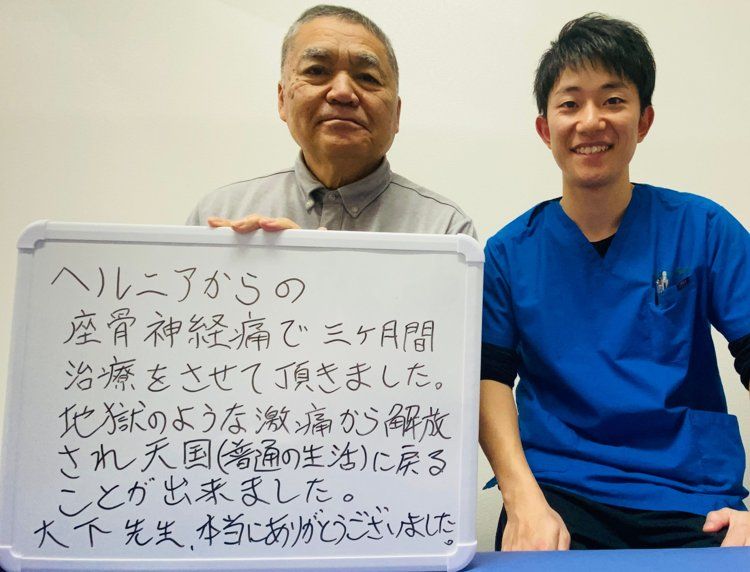 ヘルニアからの
座骨神経痛で三ヶ月間
治療をさせて頂きました。
地獄のような激痛から解放
され天国(普通の生活)に戻る
ことが出来ました。
大下先生、本当にありがとうございました。